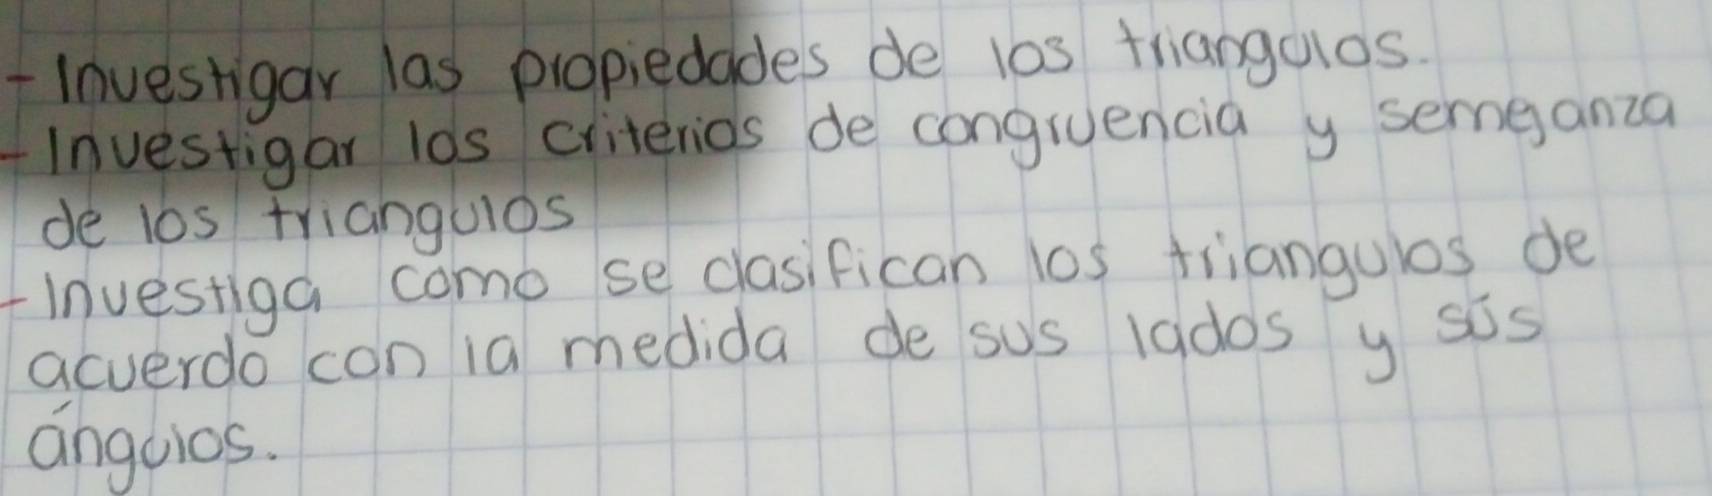 - Investigar las propiedades de los triangulos.
- Investigar los criterios de congruencia y semeganza
de los triangulos
- Investiga como se clasifican los triangulos de
acuerdo con la medida de sus lados y sús
ángulos.